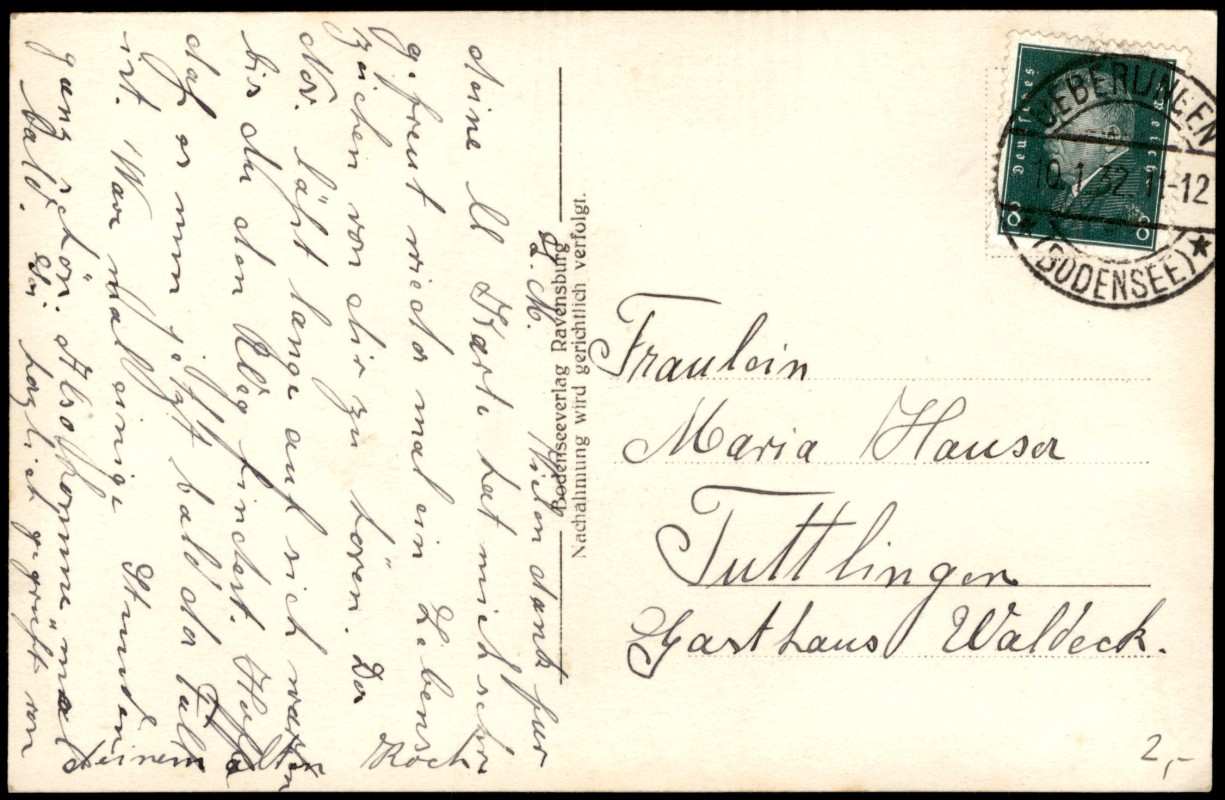 L. M. Vielen dank für
deine lb Karte hat mich sehr
gefreut wieder mal ein Lebens
zeichen von dir zu hören. Der
Nor. läßt lange auf sich warten
bis du den Weg findest. Hoffe
daß es nun jetzt bald der Fall
ist. War mall einige Stunden
ganz schön. Also komme mal
bald. Sei herzlich gegrüßt von
deinem alten Koch
Bodenseeverlag Ravensburg
Nachahmung wird gerichtlich verfolgt.
Deutsches Reich
8 8
UEBERLINGEN
10.1.32.11-12
(BODENSEE)
Fräulein
Maria Hauser
Tuttlingen
Gasthaus Waldeck.
2,-